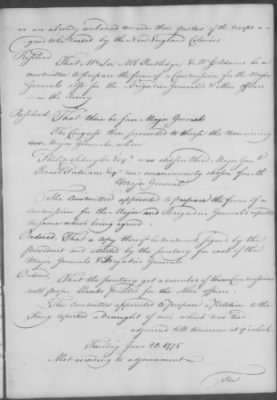 as are already embodied towards their quotas of the troops a-
greed to be raised by the New England Colonies
Resolved
That Mr Lee, Mr E Rutledge & Mr J Adams be a
committee to prepare the form of a Commission for the Major
Generals also for the Brigadier Generals & other officers
in the Army
Resolved That there be four Major Generals
The Congress then proceeded to chuse the remaining
two Major Generals when
Philip Schuyler Esqr was chosen third Major Genl &
Israel Putnam Esqr was unanimously chosen fourth
Major General
The committee appointed to prepare the form of a
commission for the Major and Brigadier Generals reported
the same which being agreed
Ordered, That a copy thereof be made out signed by the
president and attested by the Secretary for each of the
Major Generals & Brigadier Generals
Ordered,
That the Secretary get a number of these Commissions
with proper blanks printed for the other officers
The committee appointed to prepare a Petition to the
King reported a draught of one, which was read
adjourned till tomorrow at 9 o'clock
Tuesday June 20. 1775
Met according to adjournment